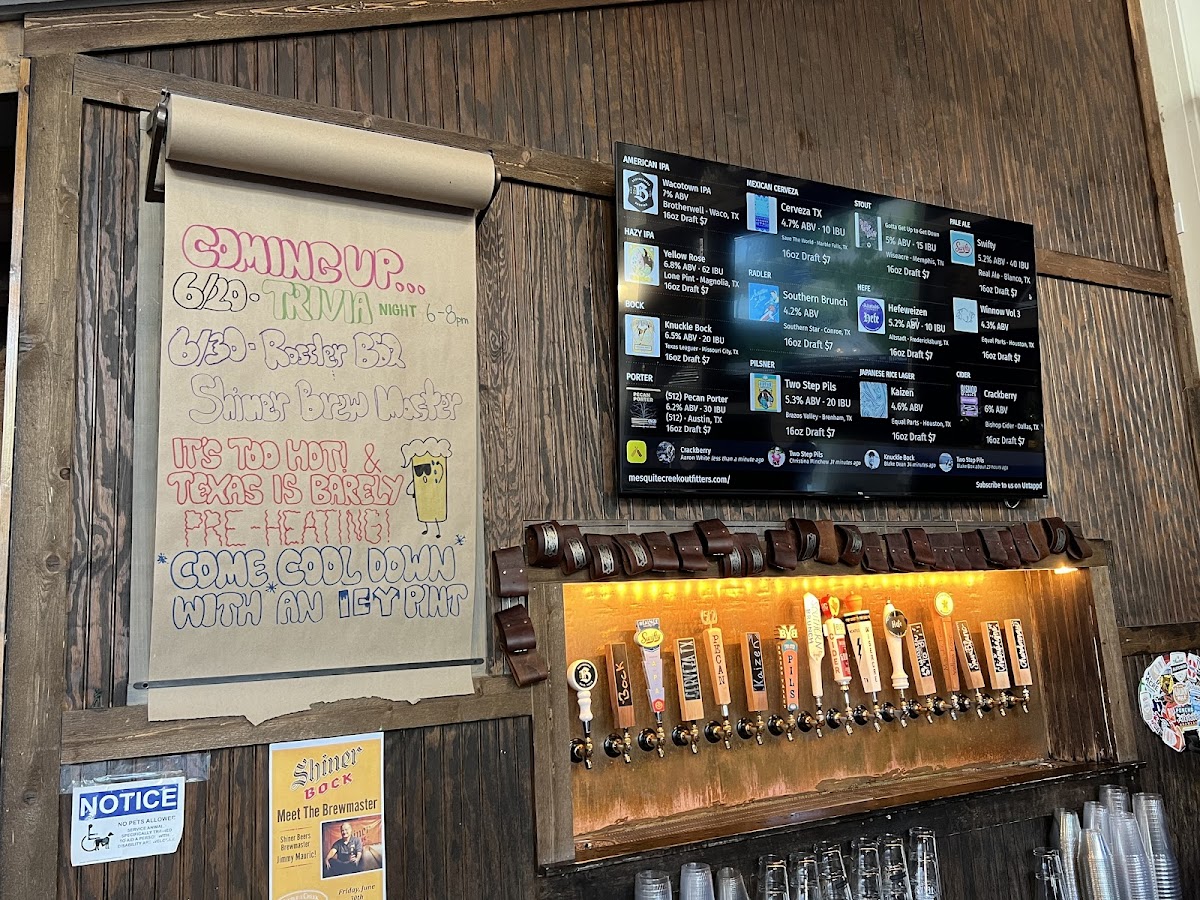 COMING UP...
6/20- TRIVIA NIGHT 6-8pm
6/30-
Shiner Brew Master
IT'S TOO HOT! &
TEXAS IS BARELY
PRE-HEATING!
*COME COOL DOWN*
WITH*AN ICY PINT
AMERICAN IPA
Wacotown IPA
7% ABV
Brotherwell - Waco, TX
16oz Draft $7
HAZY IPA
Yellow Rose
6.8% ABV · 62 IBU
Lone Pint - Magnolia, TX
16oz Draft $7
BOCK
Knuckle Bock
6.5% ABV · 20 IBU
Texas Leaguer - Missouri City, TX
16oz Draft $7
PORTER
PECAN PORTER
(512) Pecan Porter
6.2% ABV · 30 IBU
(512) - Austin, TX
16oz Draft $7
MEXICAN CERVEZA
Cerveza TX
4.7% ABV · 10 IBU
Save The World - Marble Falls, TX
16oz Draft $7
RADLER
Southern Brunch
4.2% ABV
Southern Star - Conroe, TX
16oz Draft $7
PILSNER
Two Step Pils
5.3% ABV · 20 IBU
Brazos Valley - Brenham, TX
16oz Draft $7
STOUT
Gotta Get Up to Get Down
5% ABV · 15 IBU
Wiseacre - Memphis, TN
16oz Draft $7
HEFE
Hefe
Hefeweizen
5.2% ABV · 10 IBU
Altstadt - Fredericksburg, TX
16oz Draft $7
JAPANESE RICE LAGER
Kaizen
4.6% ABV
Equal Parts - Houston, TX
16oz Draft $7
PALE ALE
Swifty
Swifty
5.2% ABV · 40 IBU
Real Ale - Blanco, TX
16oz Draft $7
Winnow Vol 3
4.3% ABV
Equal Parts - Houston, TX
16oz Draft $7
CIDER
BISHOP
Crackberry
6% ABV
Bishop Cider - Dallas, TX
16oz Draft $7
Crackberry
Aaron White less than a minute ago
Two Step Pils
Christina Minchew 31 minutes ago
Knuckle Bock
Blake Dean 34 minutes ago
Two Step Pils
mesquitecreekoutfitters.com/
Subscribe to us on Untappd
B
Bock
Swifty
CERVEZA TX
PECAN
Kaizen
PILS
CIDER
Hefe
NOTICE
NO PETS ALLOWED
SERVICE ANIMAL
SPECIFICALLY TRAINED
TO AID A PERSON WITH
Shiner
BOCK
Meet The Brewmaster
Shiner Beers
Brewmaster
Jimmy Mauric!
Friday, June
30th